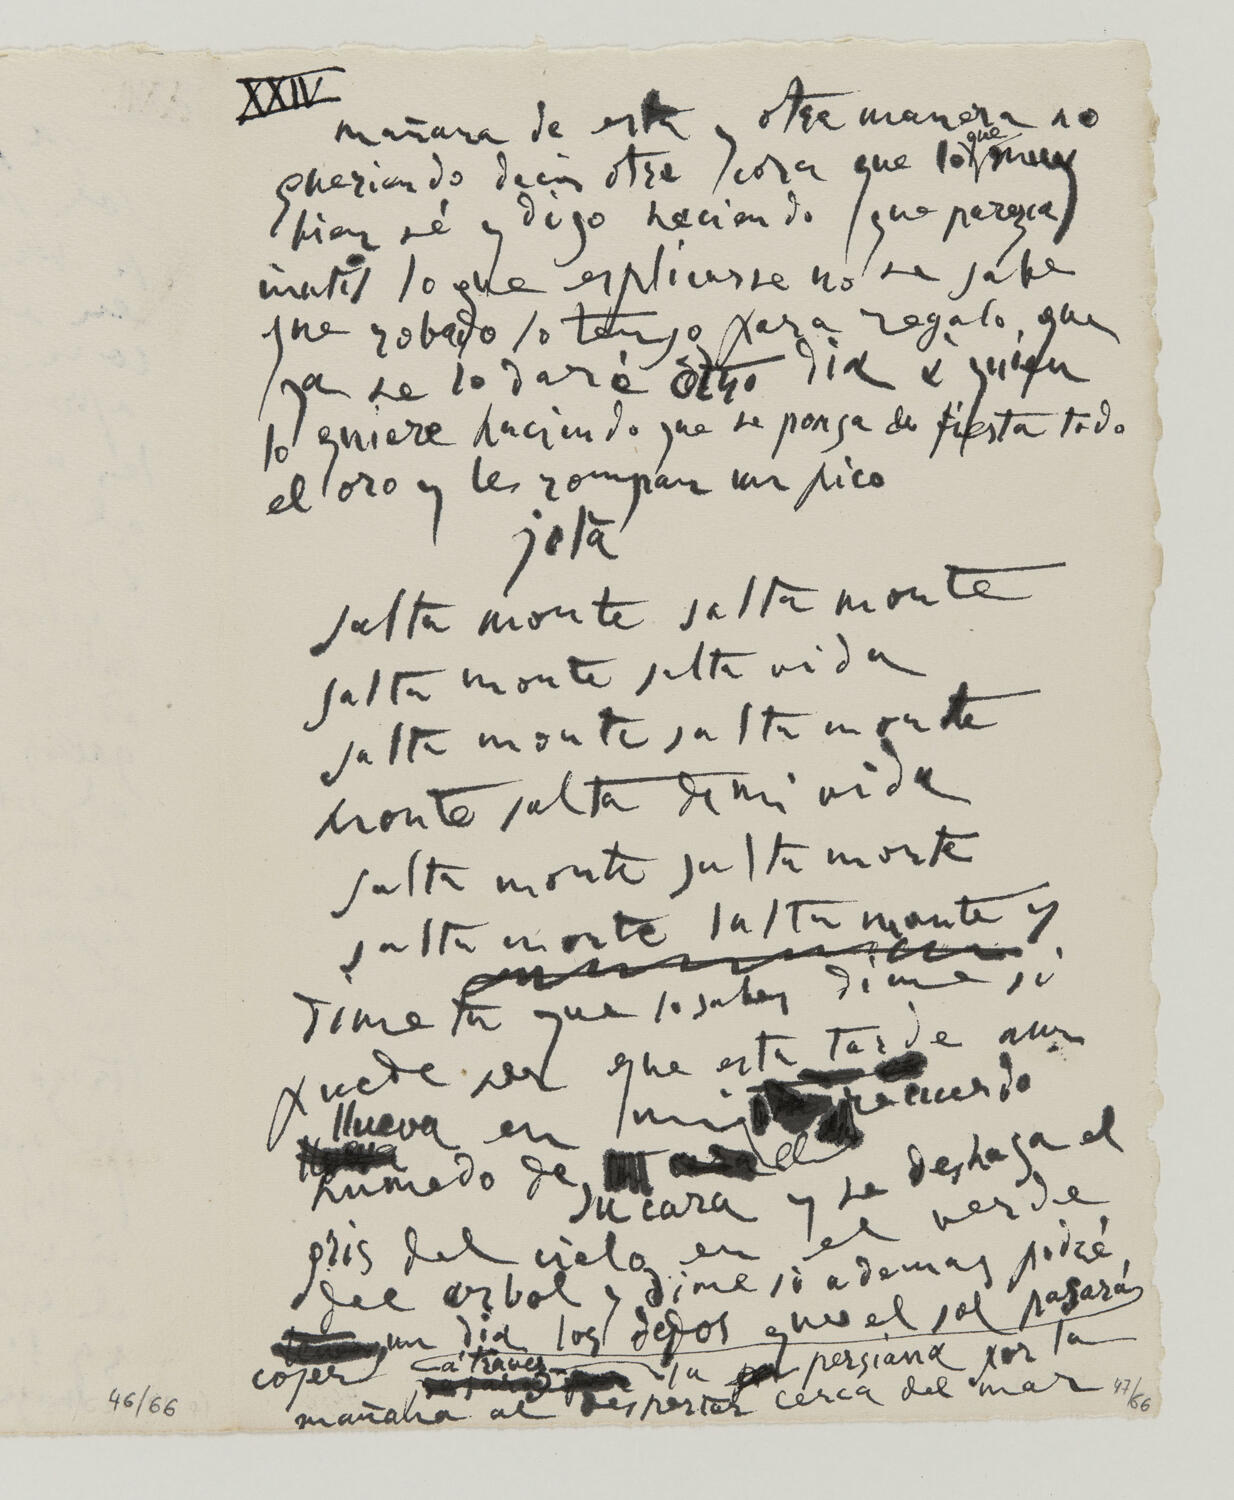 XXIV
mañana de esta y otra manera no
queriendo decir otra cosa que lo que muy
bien sé y digo haciendo que paresca
inutil lo que esplicarse no se sabe
que robado lo tengo para regalo que
ya se lo daré otro dia a quien
lo quiere haciendo que se ponga de fiesta todo
el oro y les rompan un pico
jota
salta monte salta monte
salta monte salta vida
salta monte salta monte
monte salta de mi vida
salta monte salta monte
salta monte salta monte y
dime tu que lo sabes dime si
puede ser que esta tarde aun
llueva en mi recuerdo
humedo de el
su cara y se deshaga el
gris del cielo en el verde
del arbol y dime si ademas podré
un dia los dedos que el sol pasará
cojer a traves la persiana por la
mañana al despertar cerca del mar
46/66
47/66